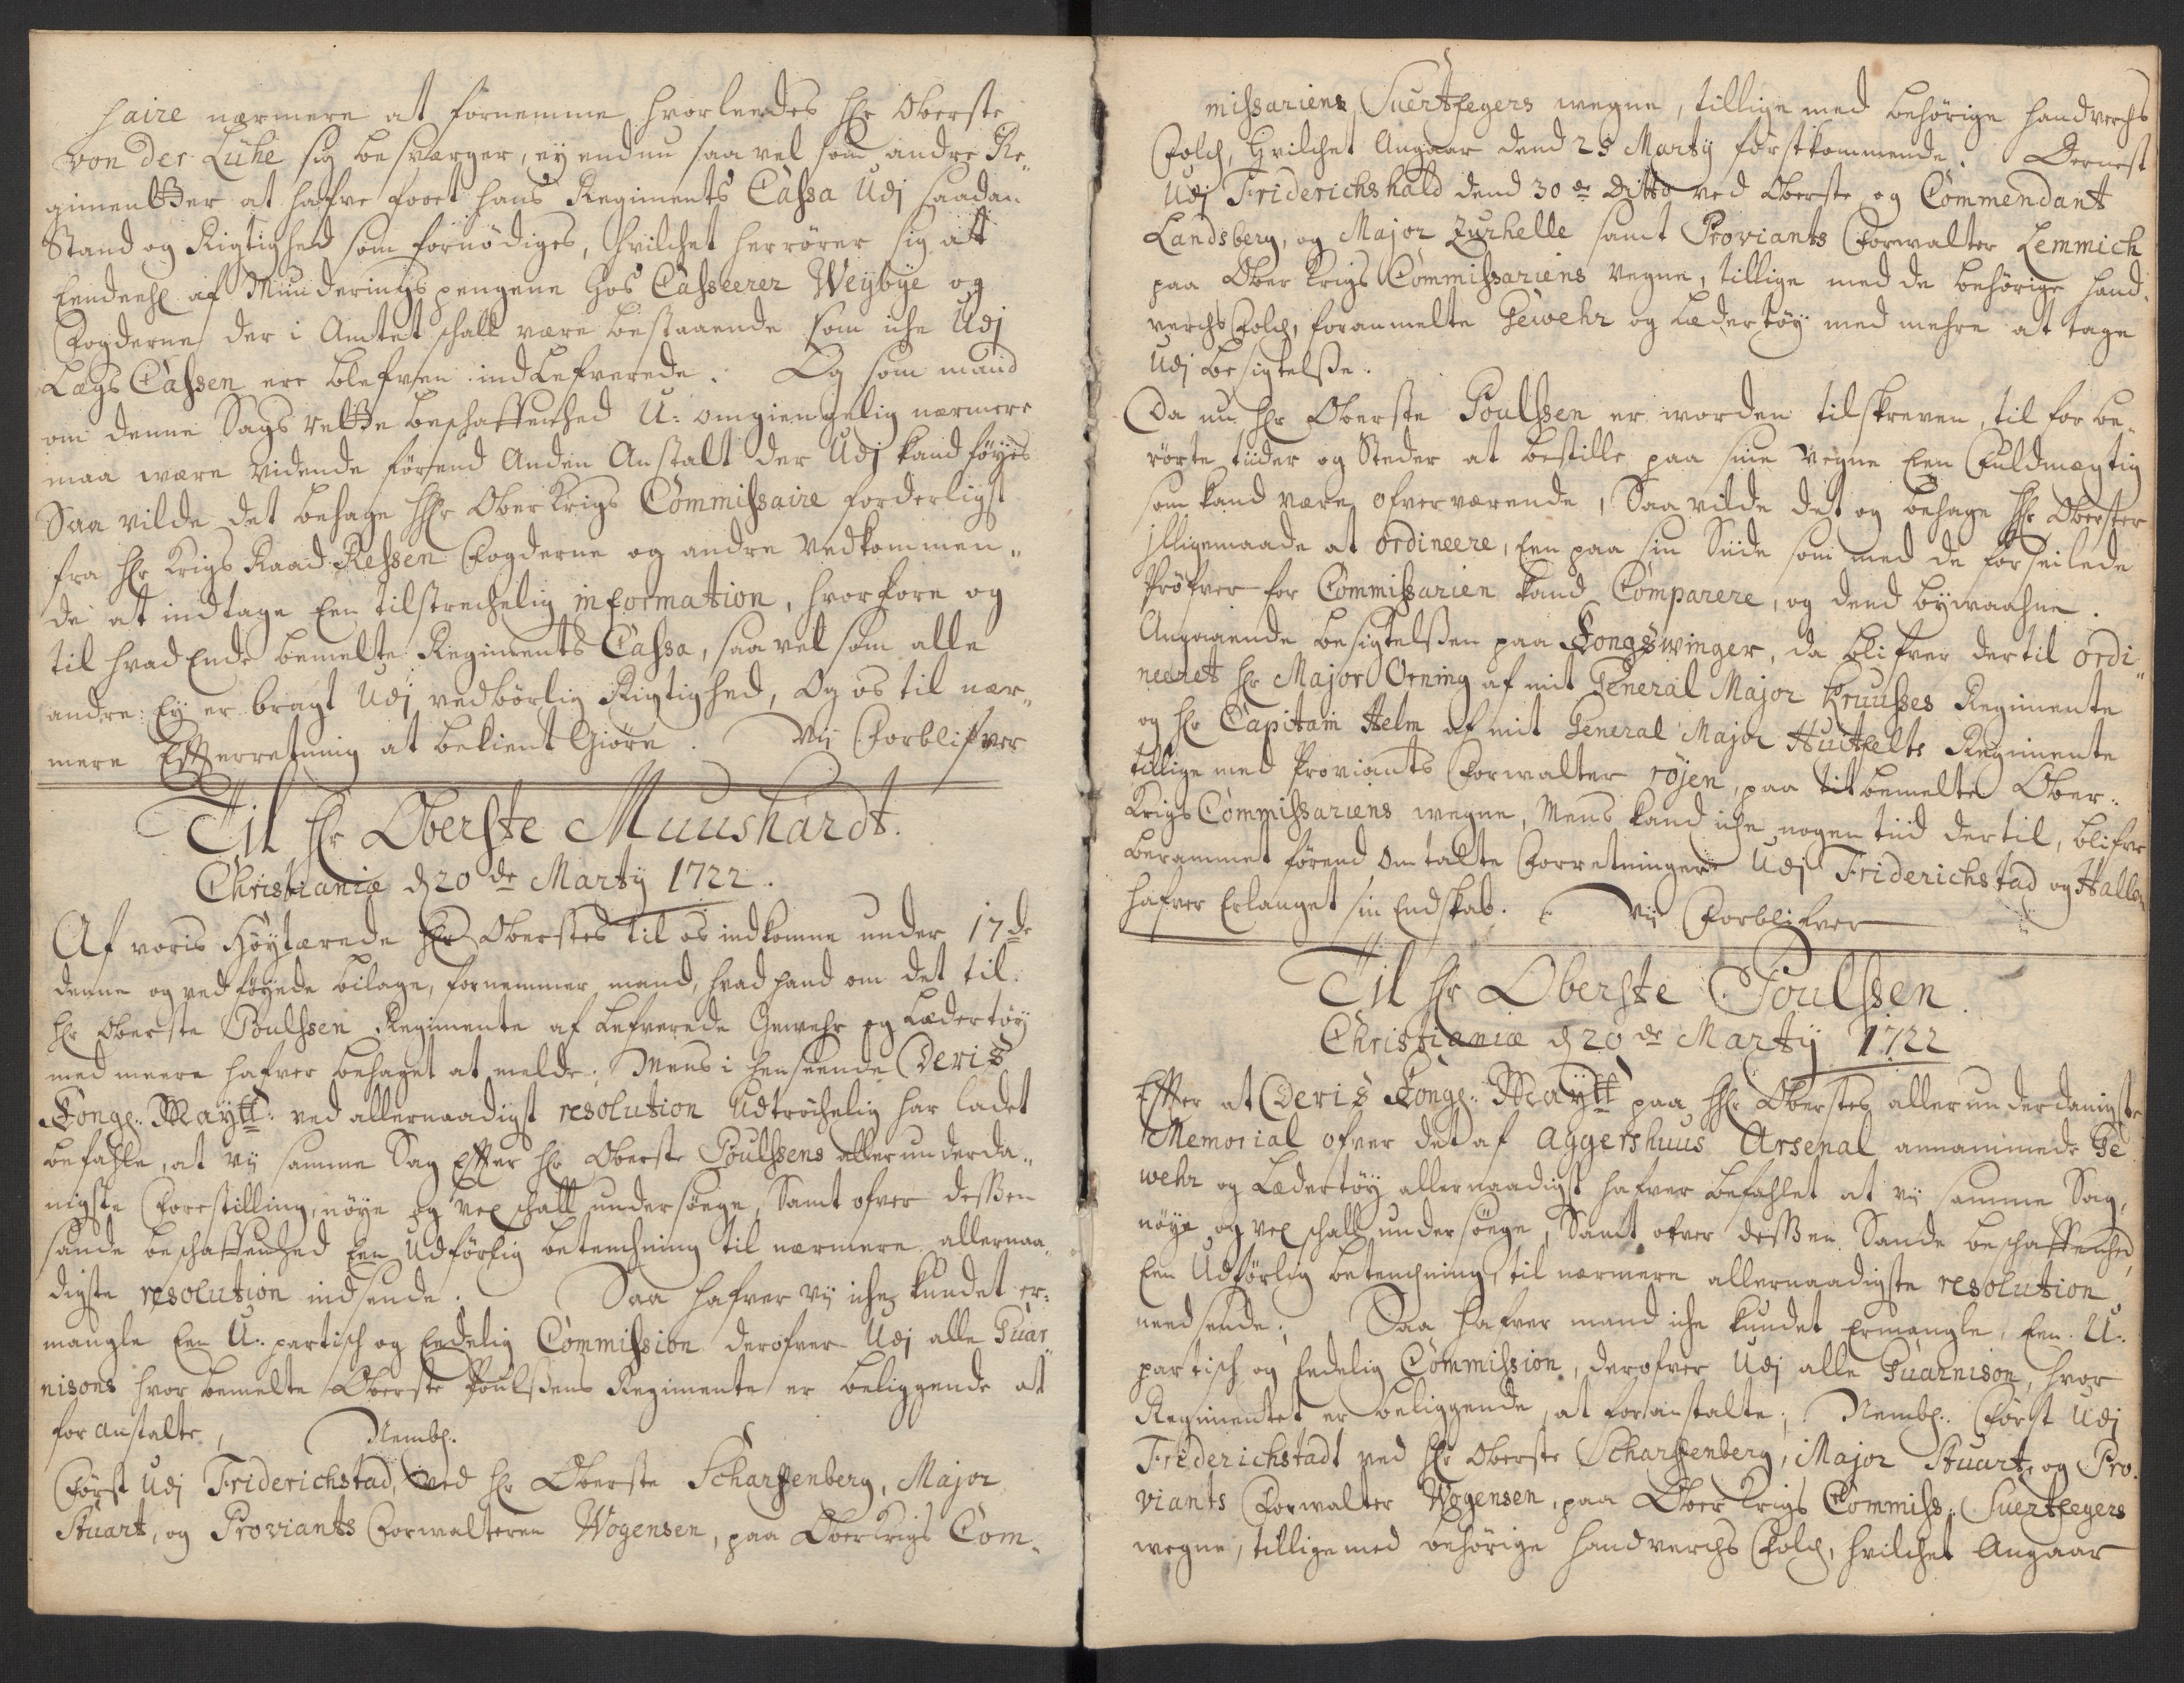 saire nærmere at fornemme hvorleedes Hr Oberste
von der Lühe sig besværger, ey endnu saa vel som andre Re„
gimentter at hafve faaet hans Regiments Cassa Udj saadan
Stand og Rigtighed som fornödiges, hvilchet herrörer sig att
Eendeehl af Munderings pengene hos Casseerer Weybye og
Fogderne der i Amtet schall være bestaaende som iche Udj
Lægs Cassen ere blefven indlefverede. Og som mand
om denne Sags rette beschaffenhed U: omgiengelig nærmere
maa være vidende förend Anden Anstalt der Udj kand föyes
Saa vilde det behage Hr Ober Krigs Commissaire forderligst
fra Hr Krigs Raad Ressen Fogderne og andre Vedkommen„
de at indtage Een tilstrechelig information, hvorfore og
til hvad Ende bemelte Regiments Cassa, saa vel som alle
andre: Ey er bragt Udj vedbörlig Rigtighed, Og os til nær„
mere Efterretning at bekient Giöre. Vii Forblifver
Til Hr Oberste Muushardt.
Christianiæ d 20de Martij 1722.
Af voris Höytærede Hr Oberstes til os indkomne under 17de
denne og ved föyede bilage, fornemmer mand, hvad hand om det til
Hr Oberste Poulssen Regimente af Lefverede Gewehr og Lædertöy
med meere hafver behaget at melde; Mens i henseende Deris
Kongl: Maytt: ved allernaadigst resolution Udtröchelig har ladet
befahle, at vij samme Sag Efter Hr Oberste Poulssens allerunderda„
nigste Forestilling, nöye og Vel schall undersöege, Samt ofver dessen
sande beschaffenhed Een Udförlig betenchning til nærmere allernaa„
digste resolution indsende. Saa hafver vij iche kundet er„
mangle Een U: partisch og Endelig Commission derofver Udj alle Guar„
nisons hvor bemelte Oberste Poulssens Regimente er beliggende at
for anstalte, Nembl.
Först Udj Friderichstad, ved Hr Oberste Scharffenberg, Major
Stuart, og Proviants Forwalteren Wogensen, paa Ober Krigs Com„
missariens Suertfegers wegne, tillige med behörige handverchs
Folch, Hvilchet Angaar dend 25 Martij förstkommende. Dernest
Udj Friderichshald dend 30de Ditto ved Oberste og Commendant
Landsberg, og Major Zurhelle samt Proviants Forwalter Lemmich
paa Ober Krigs Commissariens Vegne, tillige med de behörige hand„
verchs Folch, foranmelte Gewehr og Lædertöy med mehre at tage
Udj besigtelsse.
Da nu Hr Oberste Poulssen er worden tilskreven, til for be„
rörte tiider og Steder at bestille paa sine Vegne Een Fuldmegtig
som kand være ofverværende, Saa vilde det og behage Hr Oberster
jlligemaade at ordineere, Een paa sin Siide som med de forseilede
Pröfver for Commissarien kand Comparere, og dend bywaahne.
Angaaende besigtelssen paa Kongswinger, da blifver dertil ordi„
neeret Hr Major Orning af mit General Major Kruusses Regimente
og Hr Capitain Helm af mit General Major Huitfelts Regimente
tillige med Proviants Forwalter röjen, paa titbemelte Ober„
Krigs Commissariens wegne, Mens kand iche nogen tiid dertil, blifve
berammet förend omtalte Forretninger Udj Friderichstad og Hallen
hafver Erlanget sin Endskab. Vij Forblifver
Til Hr Oberste Poulssen.
Christianiæ d 20de Martij 1722
Efter at Deris Kongl: Maytt paa Hr Oberstes allerunderdanigste
Memorial ofver det af Aggershuus Arsenal annammede Ge
wehr og Lædertöy allernaadigst hafver befahlet at vij samme Sag,
nöye og vel schall undersöege, Samt ofver dessen Sande beschaffenhed,
Een Udförlig betenchning til nærmere allernaadigste resolution
needsende; Saa hafver mand iche kundet Ermangle, Een U:
partisch og Endelig Commission, derofver Udj alle Guarnison, hvor
Regimentet er beliggende, at foranstalte; Nembl: Först Udj
Friderichstadt ved Hr Oberste Scharffenberg, Major Stuart, og Pro„
viants Forwalter Wogensen, paa Ober Krigs Commiss: Suertfegers
wegne, tillige med behörige handverchs Folch, hvilchet Angaar